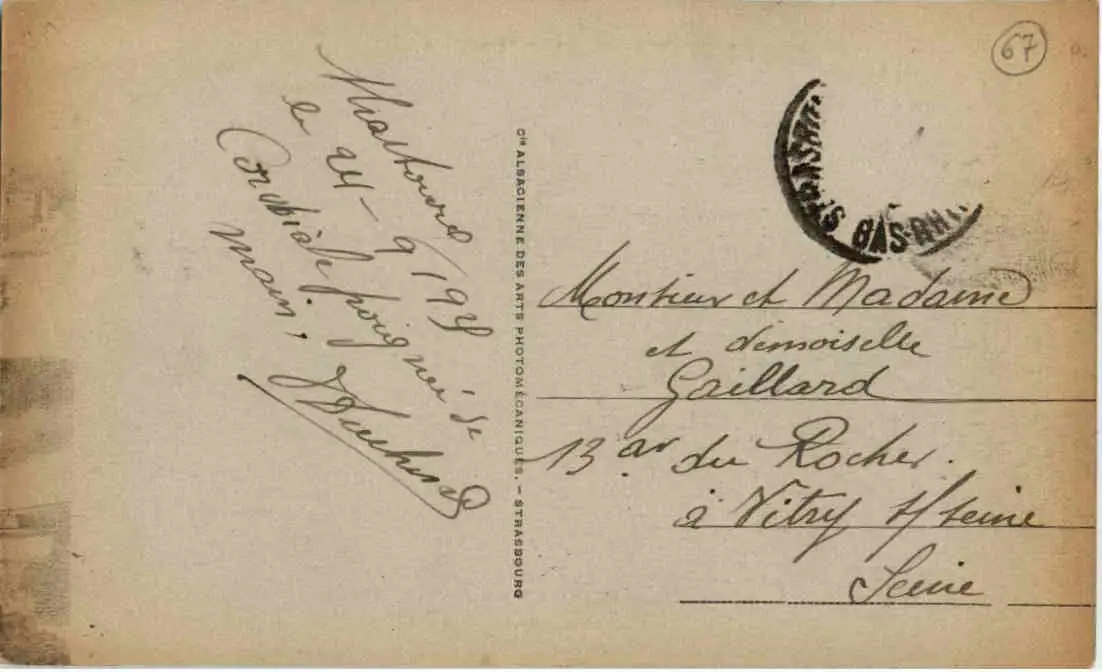 67
Strasbourg
le 24-9/194
Cordiale poignée de
main.
Cie ALSACIENNE DES ARTS PHOTOMÉCANIQUES. – STRASBOURG
BAS-RHIN
Monsieur et Madame
et demoiselle
Gaillard
13 av du Rocher.
à Vitry s/seine
Seine